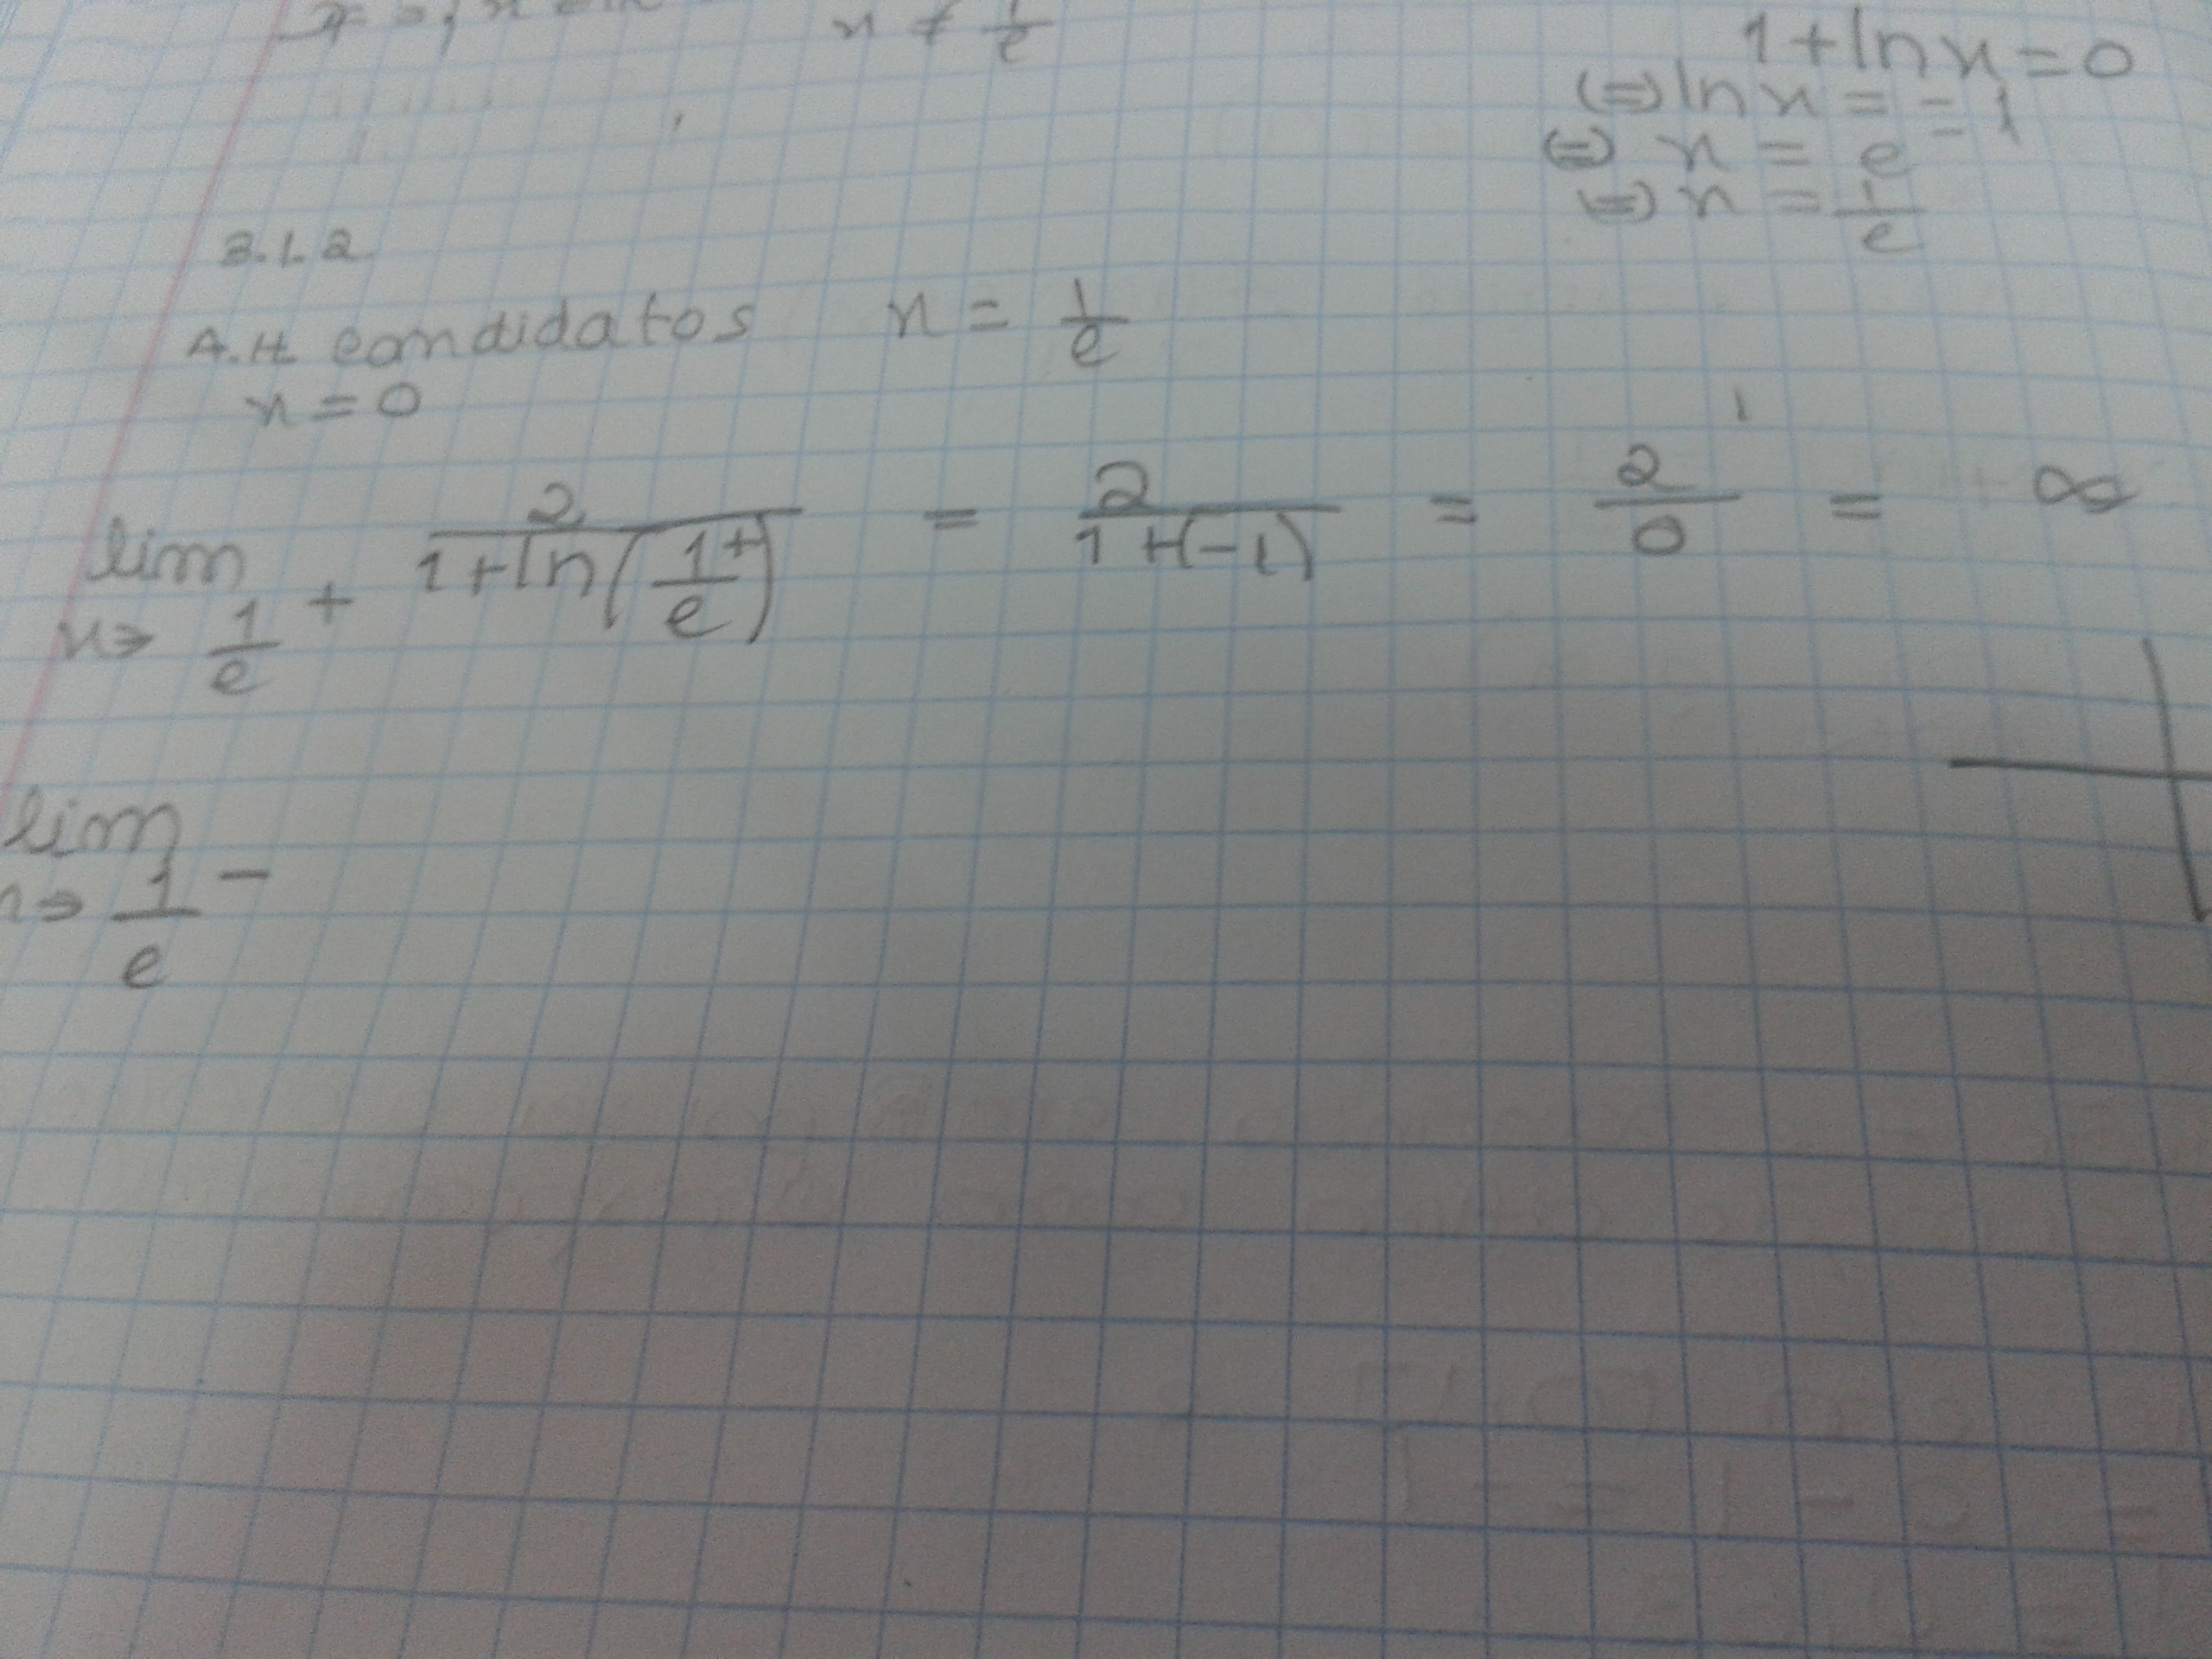 x ≠ 1/e
1 + ln x = 0
(=) ln x = -1
(=) x = e^-1
(=) x = 1/e
3.1.2
A.H. candidatos x = 1/e
x = 0
lim x→1/e+ 2/(1+ln(1/e+)) = 2/(1+(-1)) = 2/0 = ∞
lim x→1/e-